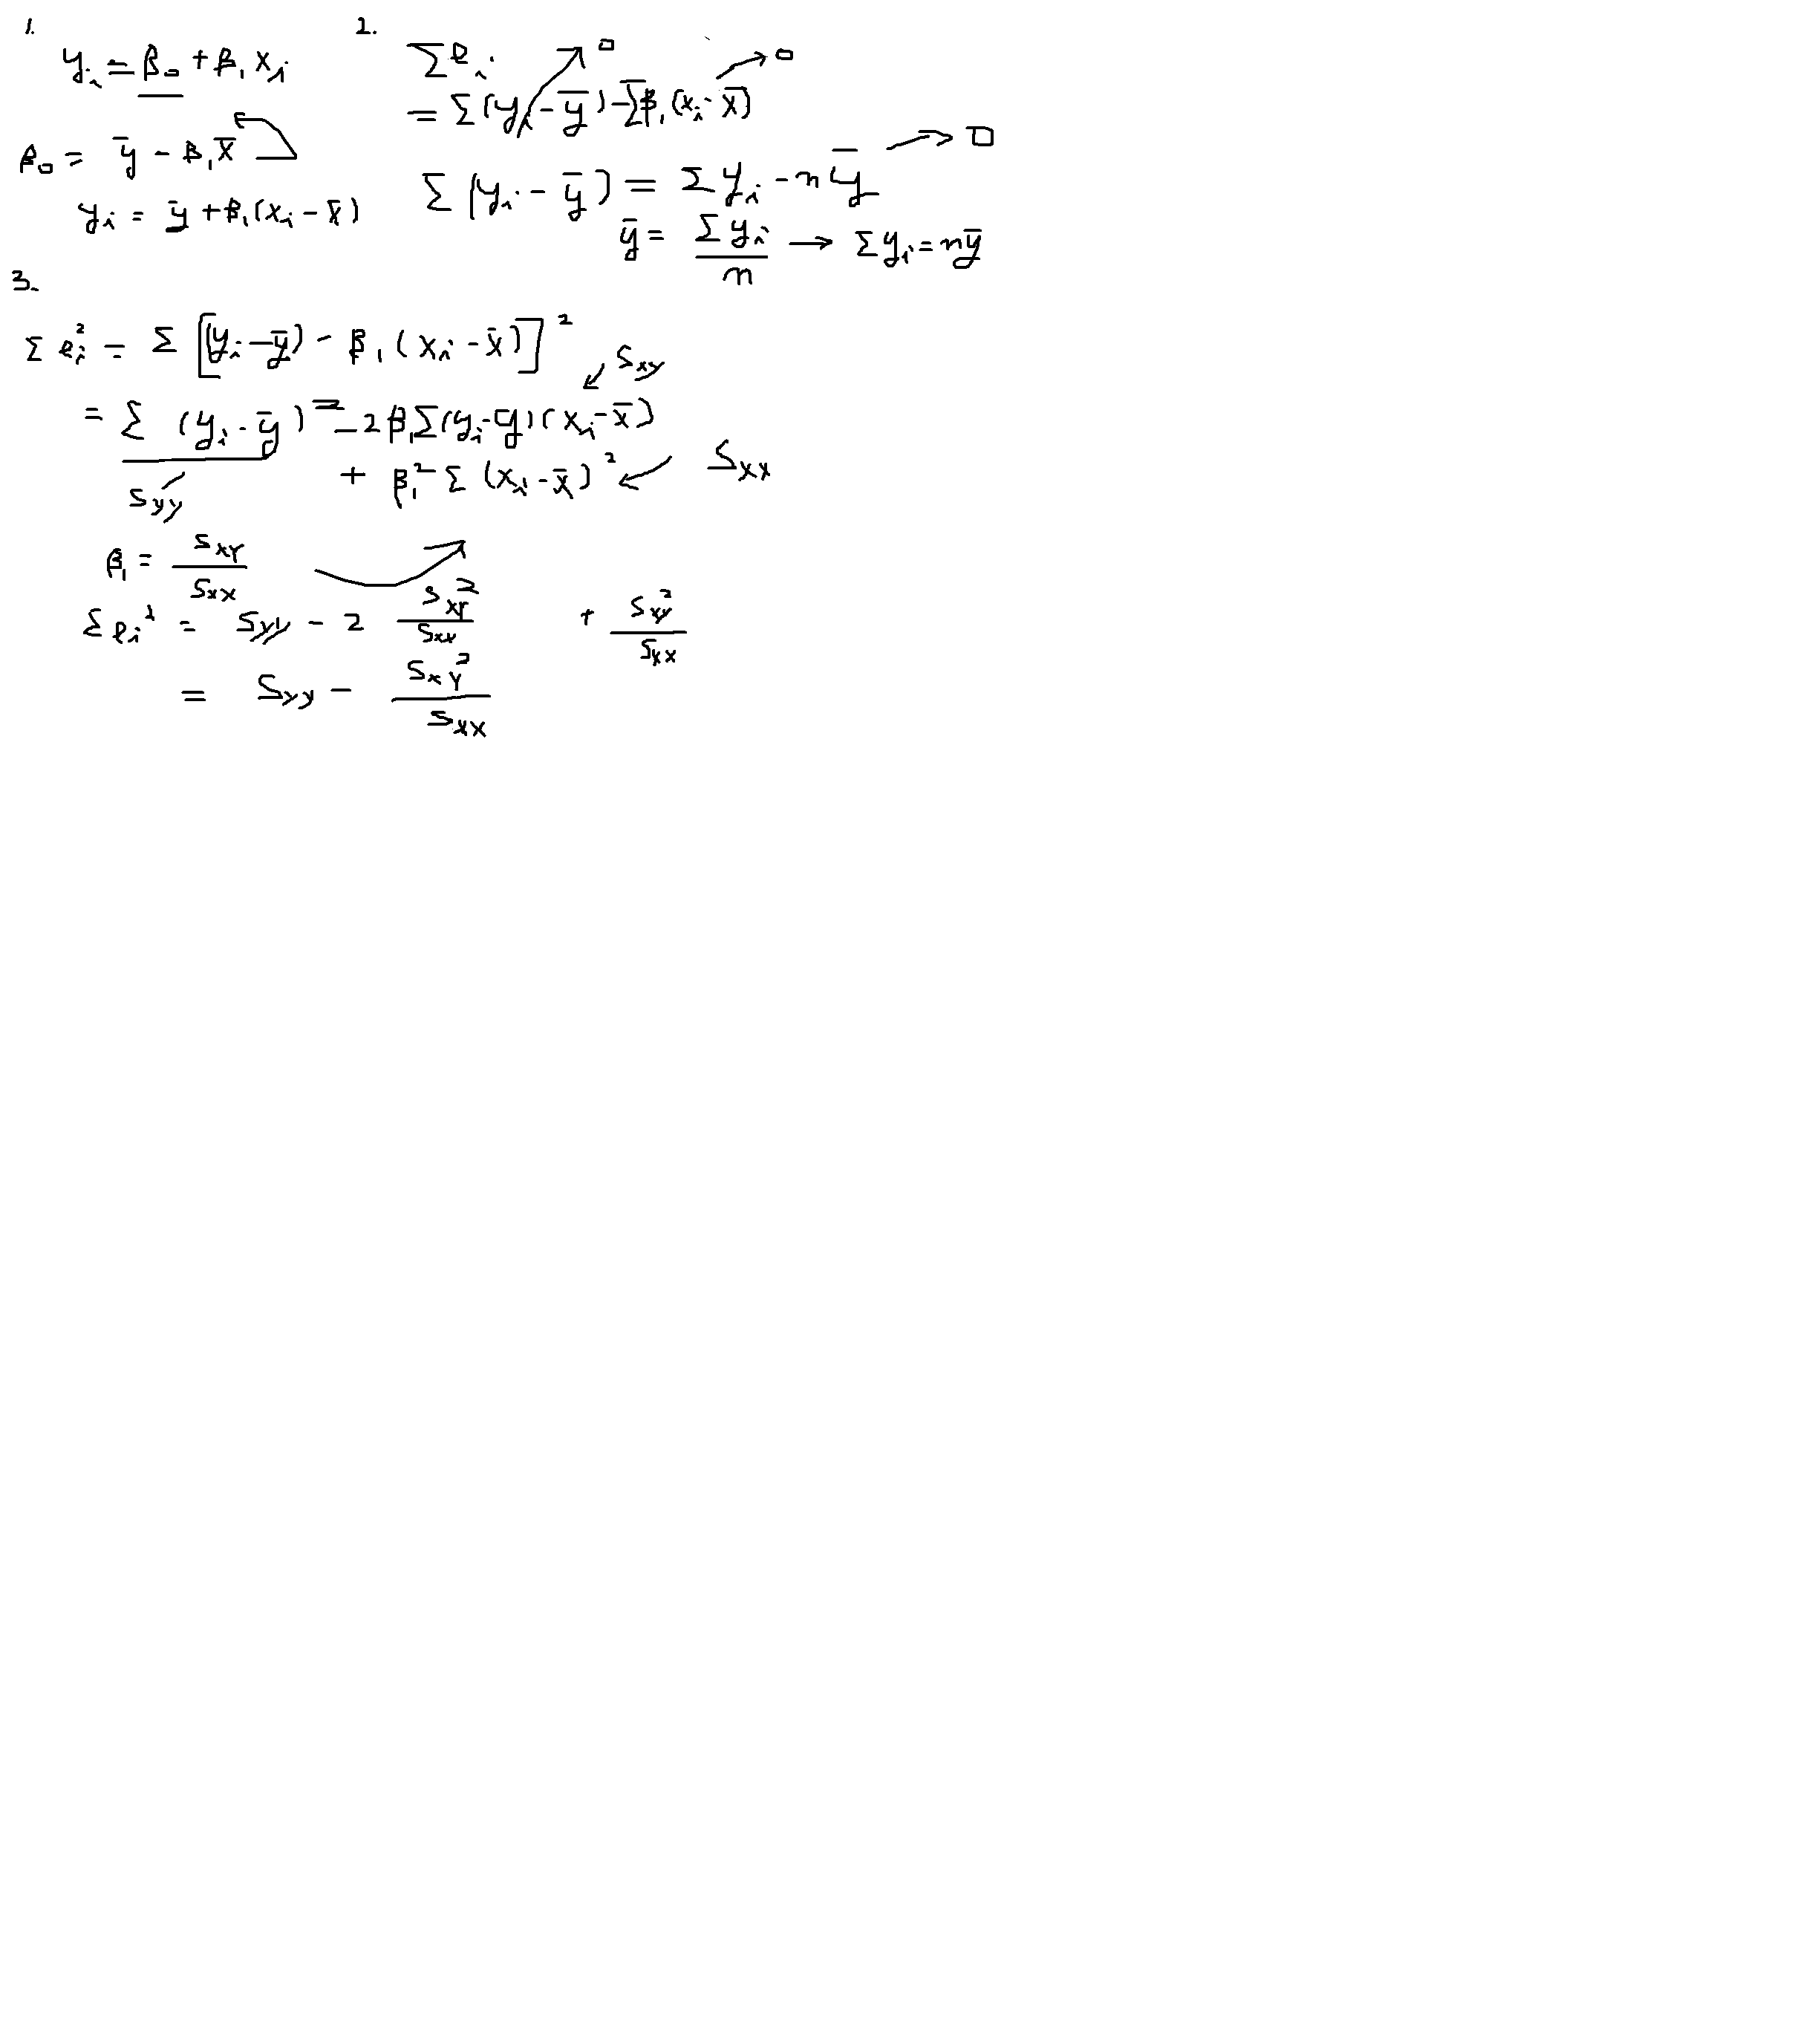 1.
y_i = β_0 + β_1 x_i
β_0 = ȳ - β_1 x̄
y_i = ȳ + β_1 (x_i - x̄)
2.
Σ e_i
= Σ (y_i - ȳ) - Σ β_1 (x_i - x̄)
→ 0
→ 0
Σ (y_i - ȳ) = Σ y_i - n ȳ → 0
ȳ = Σ y_i / n → Σ y_i = n ȳ
3.
Σ e_i² = Σ [(y_i - ȳ) - β_1 (x_i - x̄)]²
S_xy
= Σ (y_i - ȳ)² - 2 β_1 Σ (y_i - ȳ)(x_i - x̄)
+ β_1² Σ (x_i - x̄)² ← S_xx
S_yy
β_1 = S_xy / S_xx
Σ e_i² = S_yy - 2 S_xy² / S_xx + S_xy² / S_xx
= S_yy - S_xy² / S_xx